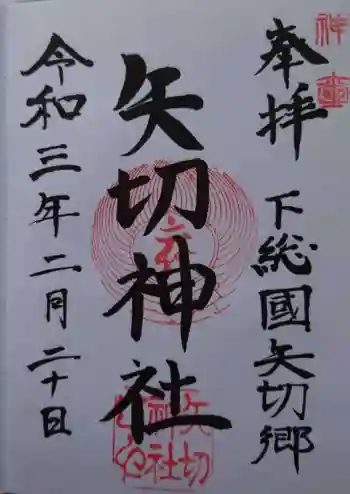 奉拝 下総國矢切郷
矢切神社
令和三年二月二十日
矢切
神社